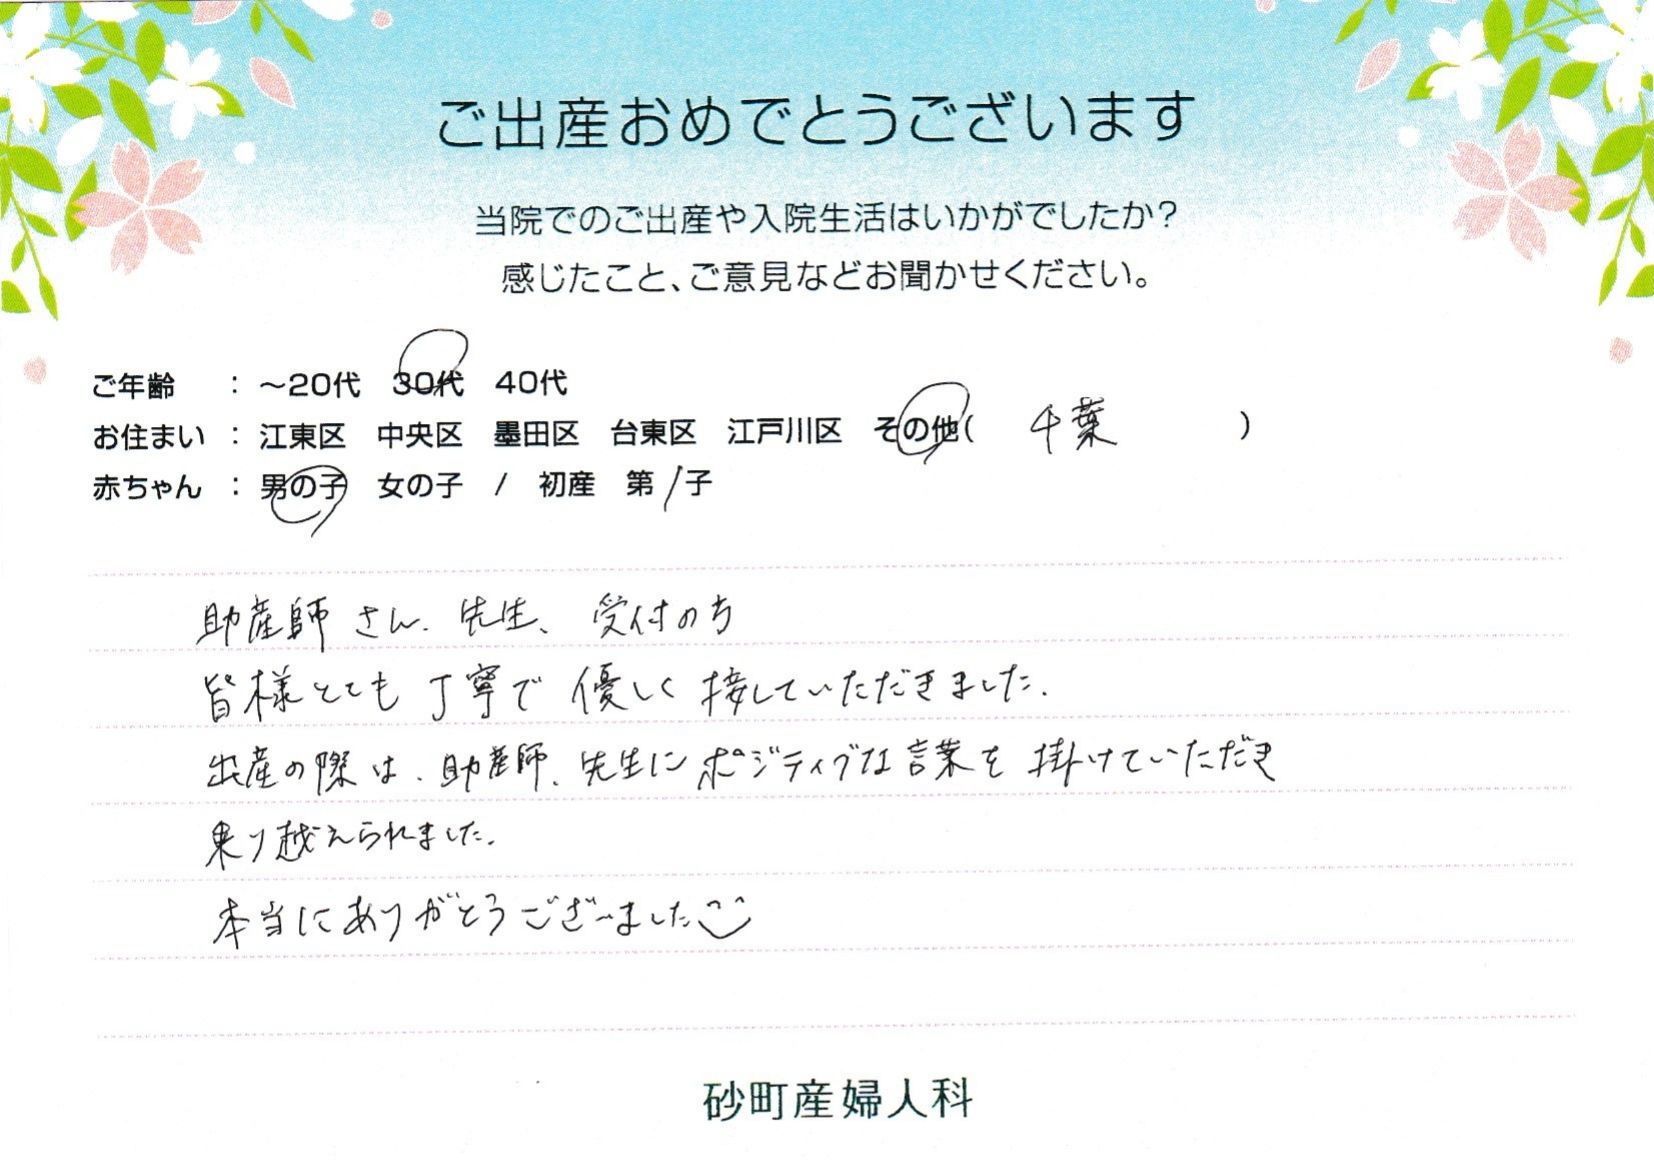 ご出産おめでとうございます
当院でのご出産や入院生活はいかがでしたか?
感じたこと、ご意見などお聞かせください。
ご年齢 : ～20代 30代 40代
お住まい : 江東区 中央区 墨田区 台東区 江戸川区 その他( 千葉 )
赤ちゃん : 男の子 女の子 / 初産 第1子
助産師さん、先生、受付の方
皆様とても丁寧で優しく接していただきました。
出産の際は、助産師、先生にポジティブな言葉を掛けていただき
乗り越えられました。
本当にありがとうございました
砂町産婦人科